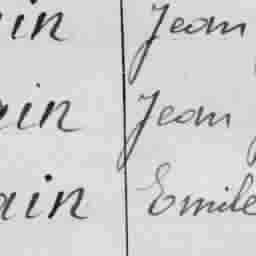 in Jean
ain Jean
ain Emile